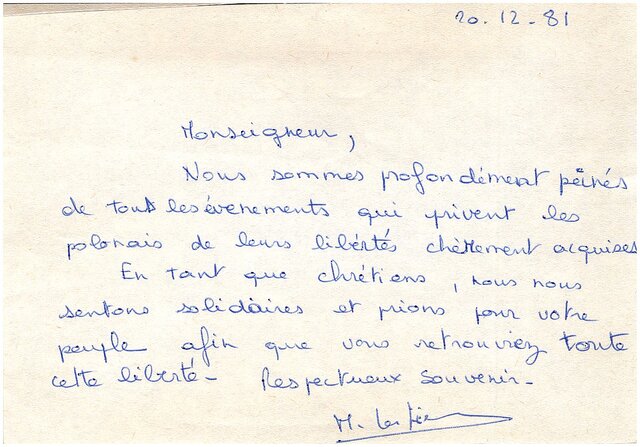 20.12.81
Monseigneur,
Nous sommes profondément peinés
de tous les évenements qui privent les
polonais de leurs libertés chèrement acquises
En tant que chrétiens, nous nous
sentons solidaires et prions pour votre
peuple afin que vous retrouviez toute
cette liberté - Respectueux souvenir -
M.